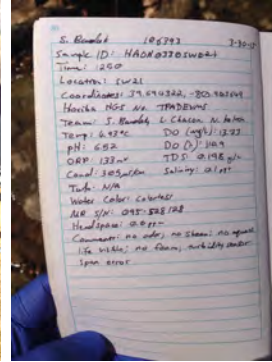 S. Burdick 106393 3-30-15
Sample ID: HAON0330SW021
Time: 1250
Location: SW21
Coordinates: 39.690322,
Horiba MGS No.
Team: S. Burdick, L. Chacon, N.
Temp: 6.93°C DO (mg/L): 13.73
pH: 6.52 DO (%):
ORP: 133 mV TDS: 0.198 g/L
Cond: 305 Salinity: 0.1 ppt
Turb: N/A
Water Color: Colorless
MR S/N: 095-528128
Headspace: 0.0 ppm
Comments: no odor; no sheen; no aquatic
life visible; no foam; turbidity sensor
span error